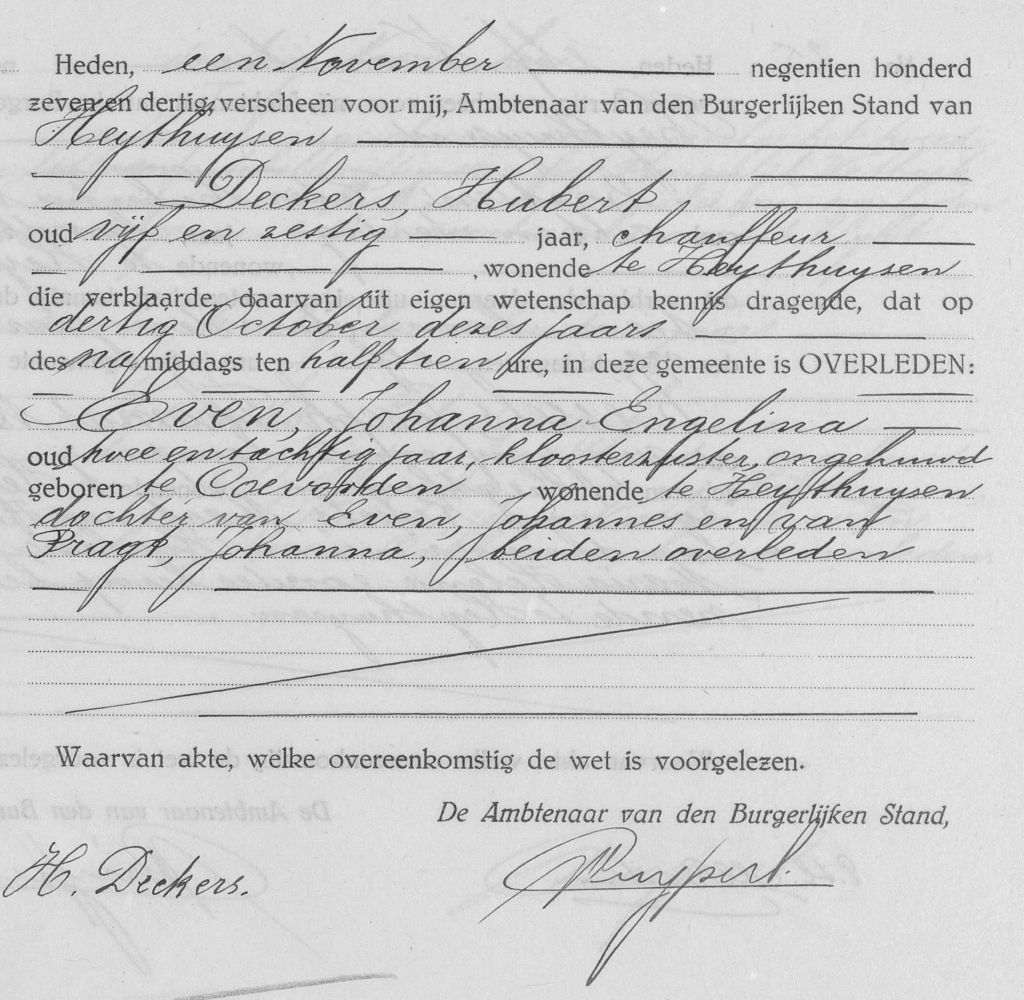 Heden, een November negentien honderd
zeven en dertig, verscheen voor mij, Ambtenaar van den Burgerlijken Stand van
Heythuysen
Deckers, Hubert
oud vijf en zestig jaar, chauffeur
, wonende te Heythuysen
die verklaarde, daarvan uit eigen wetenschap kennis dragende, dat op
dertig October dezes jaars
des na middags ten half tien ure, in deze gemeente is OVERLEDEN:
Even, Johanna Engelina
oud twee en tachtig jaar, kloosterzuster, ongehuwd
geboren te Coevorden wonende te Heythuysen
dochter van Even, Johannes en van
Pragt, Johanna, beiden overleden
Waarvan akte, welke overeenkomstig de wet is voorgelezen.
De Ambtenaar van den Burgerlijken Stand,
H. Deckers.